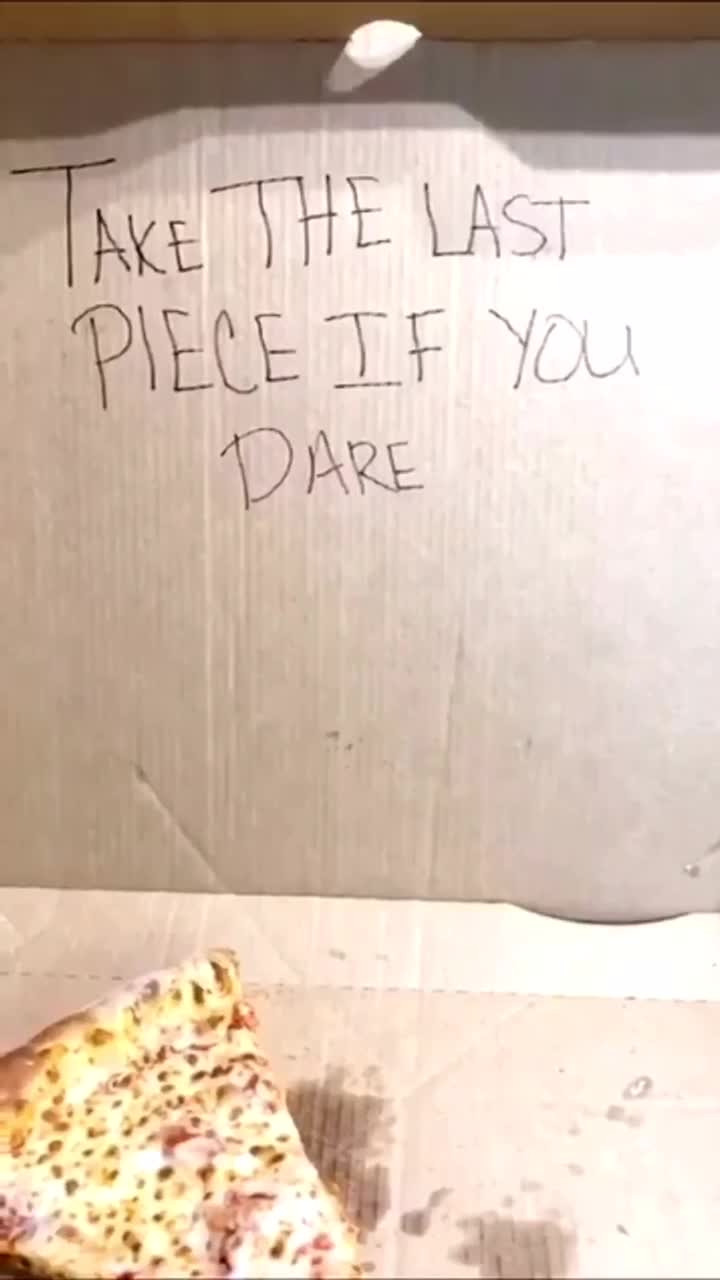 TAKE THE LAST
PIECE IF YOU
DARE